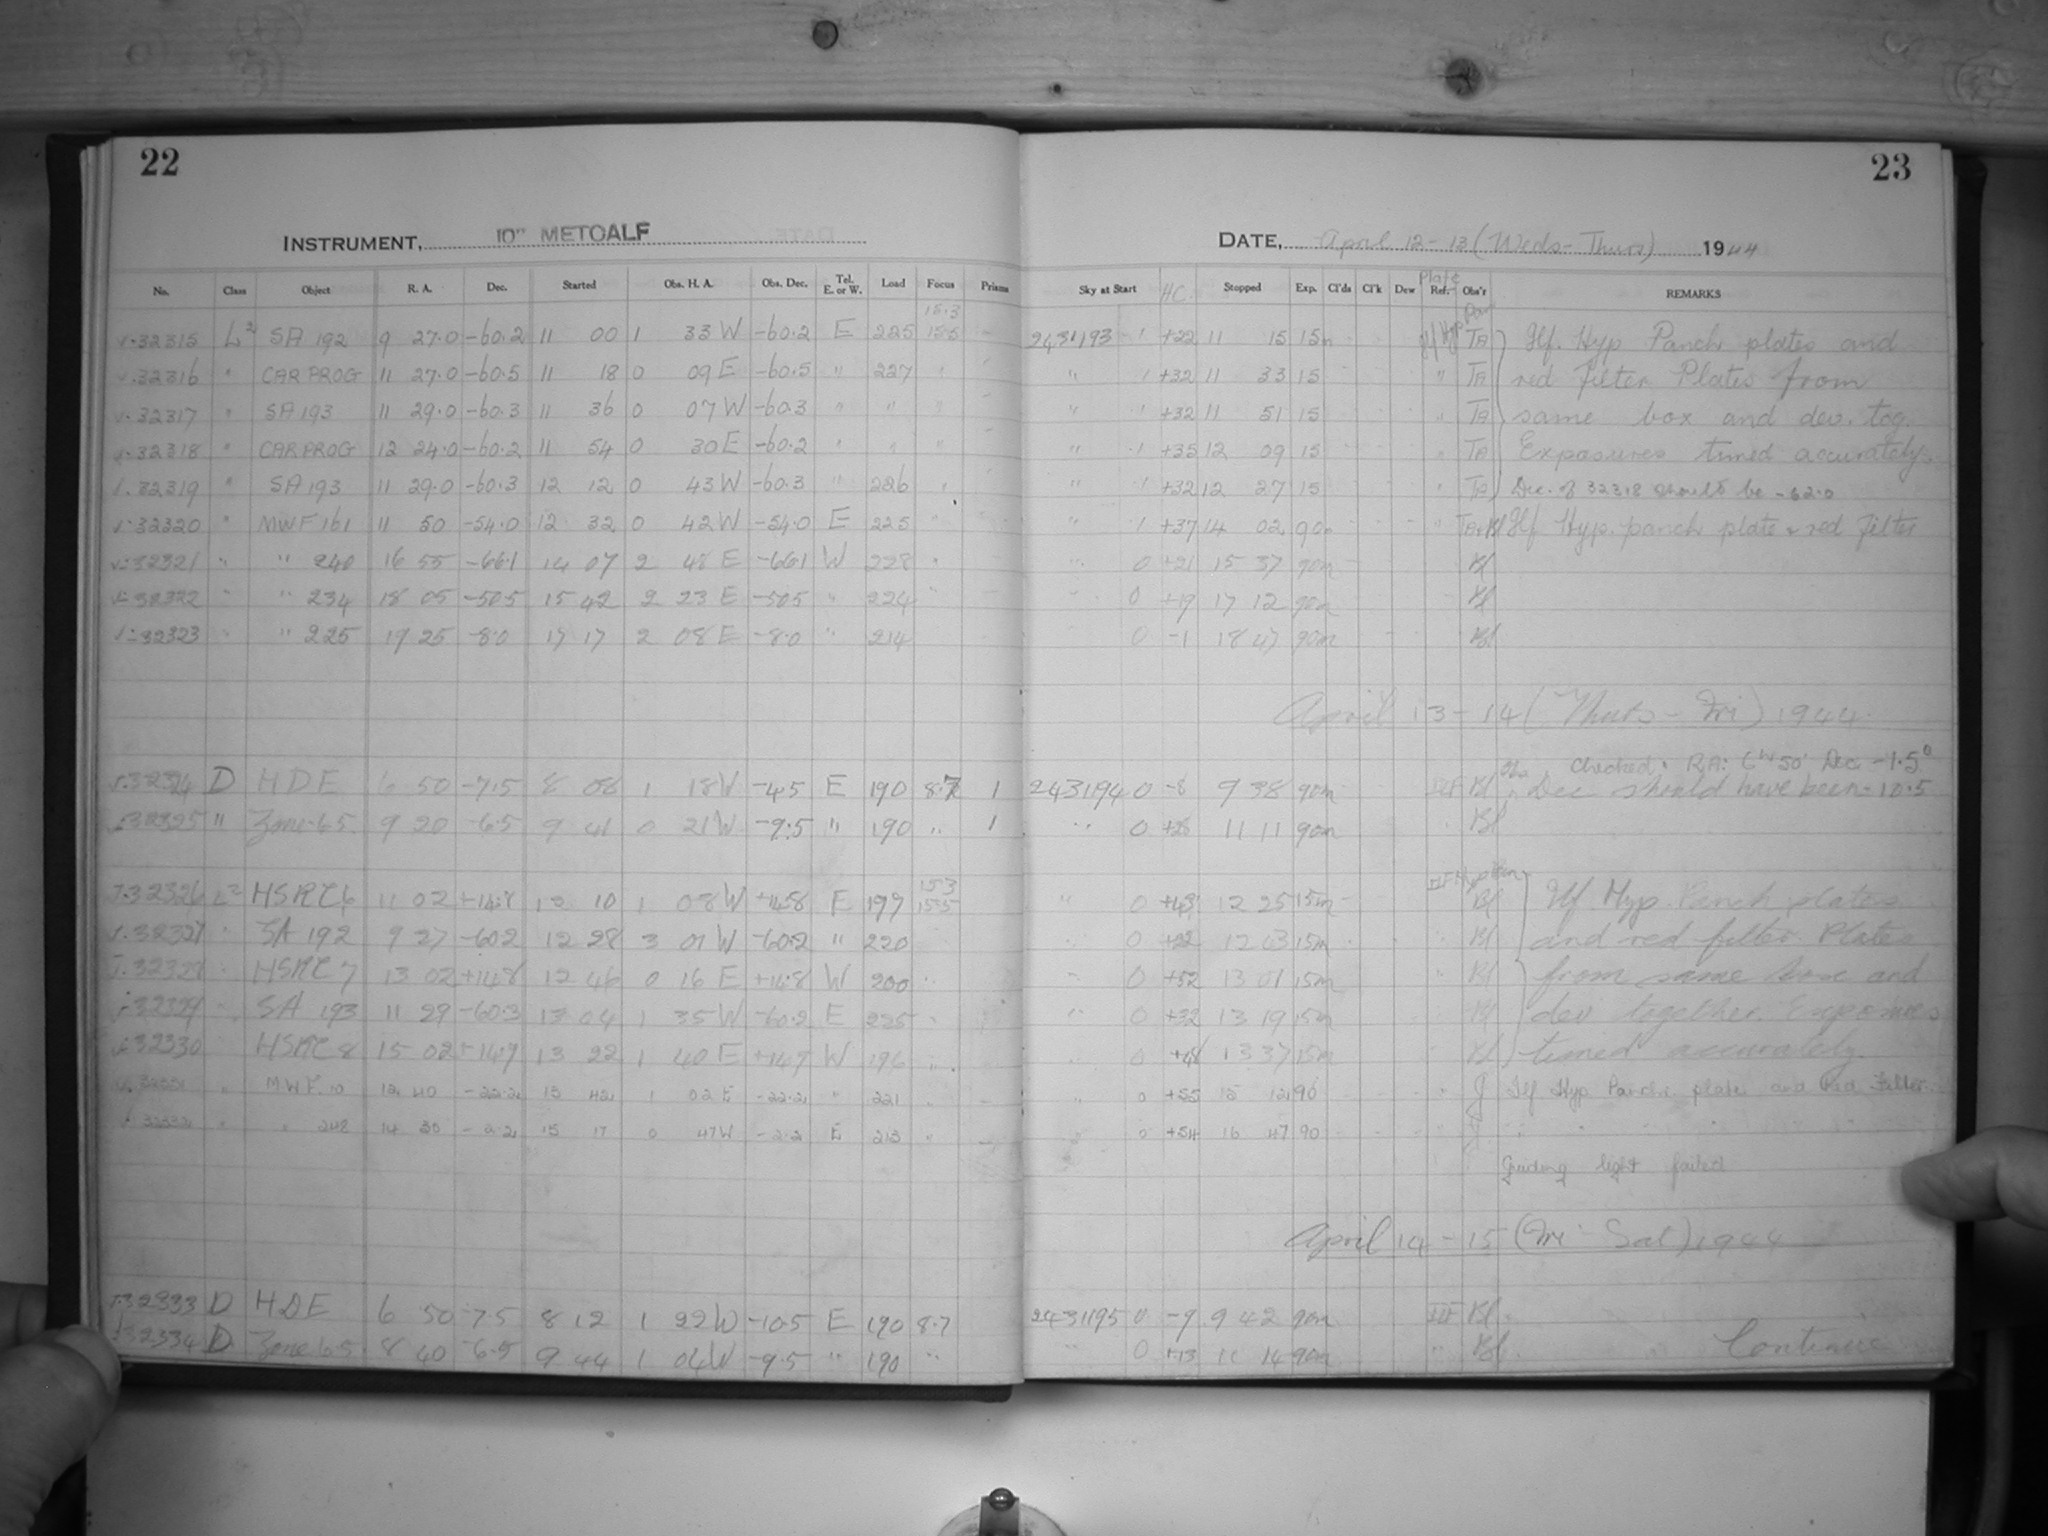 22
23
INSTRUMENT, 10" METCALF
DATE, April 12-13 (Weds-Thurs) 1944
No. Class Object R. A. Dec. Started Obs. H. A. Obs. Dec. Tel. E. or W. Load Focus Prisms Sky at Start HC. Stopped Exp. Cl'ds Cl'k Dew Plate Ref. Obs'r REMARKS
32315 L2 SA 192 9 27.0 -60.2 11 00 1 33 W -60.2 E 225 15.3 15.5 - 2431193 1 +22 11 15 15m TA Ilf. Hyp Panch plates and
32316 " CAR PROG 11 27.0 -60.5 11 18 0 09 E -60.5 " 227 " " 1 +32 11 33 15 " TA red filter Plates from
32317 " SA 193 11 29.0 -60.3 11 36 0 07 W -60.3 " " " " 1 +32 11 51 15 " TA same box and dev. tog.
32318 " CAR PROG 12 24.0 -60.2 11 54 0 30 E -60.2 " " " " 1 +35 12 09 15 " TA Exposures timed accurately.
32319 " SA 193 11 29.0 -60.3 12 12 0 43 W -60.3 " 226 " " 1 +32 12 27 15 " TA Dec. of 32318 should be -62.0
32320 " MWF 161 11 50 -54.0 12 32 0 42 W -54.0 E 225 " " 1 +37 14 02 90m " Ilf Hyp. panch plate & red filter
32321 " " 240 16 55 -66.1 14 07 2 48 E -66.1 W 228 " " 0 +21 15 37 90m Bl
32322 " " 234 18 05 -50.5 15 42 2 23 E -50.5 " 224 " " 0 +19 17 12 90m Bl
32323 " " 225 19 25 -8.0 17 17 2 08 E -8.0 " 214 " 0 -1 18 47 90m Bl
April 13-14 (Thurs-Fri) 1944
Checked. RA: 6h 50' Dec -1.5°
32324 D HDE 6 50 -7.5 8 08 1 18 W -4.5 E 190 8.7 1 2431194 0 -8 9 38 90m Bl Dec should have been -10.5
32325 " Zone 65 9 20 -6.5 9 41 0 21 W -9.5 " 190 " 1 " 0 11 11 90m Bl
32326 L2 HSRC 6 11 02 +14.8 12 10 1 08 W +14.8 E 199 15.3 15.5 " 0 +43 12 25 15m Bl Ilf Hyp. Panch plates
32327 " SA 192 9 27 -60.2 12 28 3 01 W -60.2 " 220 " 0 +22 12 43 15m " Bl and red filter. Plates
32328 " HSRC 7 13 02 +14.8 12 46 0 16 E +14.8 W 200 " " 0 +52 13 01 15m " Bl from same box and
32329 " SA 193 11 29 -60.3 13 04 1 35 W -60.2 E 225 " " 0 +32 13 19 15m " Bl dev together. Exposures
32330 HSRC 8 15 02 +14.9 13 22 1 40 E +14.9 W 196 " " 0 +48 13 37 15m " Bl timed accurately.
32331 " MWF. 10 12 40 -22.2 13 42 1 02 E -22.2 " 221 " - " 0 +55 15 12 90 " J Ilf Hyp Panch. plate and Red Filter
32332 " " 248 14 30 -2.2 15 17 0 47 W -2.2 E 213 " - " 0 +54 16 47 90 " J " " " " "
Guiding light failed
April 14-15 (Fri-Sat) 1944
32333 D HDE 6 50 -7.5 8 12 1 22 W -10.5 E 190 8.7 2431195 0 -9 9 42 90m Bl.
32334 D Zone 65 8 40 -6.5 9 44 1 04 W -9.5 " 190 " " 0 +13 11 14 90m " Bl. Continue